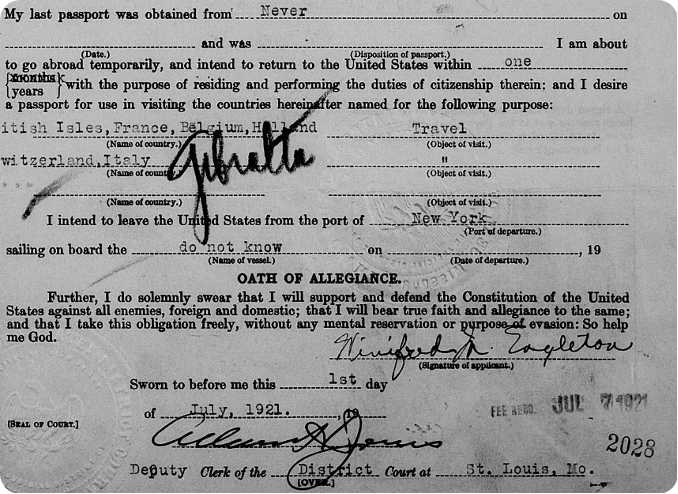 My last passport was obtained from Never on
and was I am about
(Date.) (Disposition of passport.)
to go abroad temporarily, and intend to return to the United States within one
{months
years} with the purpose of residing and performing the duties of citizenship therein; and I desire
a passport for use in visiting the countries hereinafter named for the following purpose:
itish Isles, France, Belgium, Holland Travel
(Name of country.) (Object of visit.)
witzerland, Italy "
(Name of count (Object of visit.)
Gibralta
(Name of country.) (Object of visit.)
I intend to leave the United States from the port of New York
(Port of departure.)
sailing on board the do not know on , 19
(Name of vessel.) (Date of departure.)
OATH OF ALLEGIANCE.
Further, I do solemnly swear that I will support and defend the Constitution of the United
States against all enemies, foreign and domestic; that I will bear true faith and allegiance to the same;
and that I take this obligation freely, without any mental reservation or purpose of evasion: So help
me God.
Winifred M. Eagleton
(Signature of applicant.)
Sworn to before me this 1st day
of July, 1921. , 19
FEE RECD. JUL 7 1921
[SEAL OF COURT.]
2028
Deputy Clerk of the District Court at St. Louis, Mo.
[OVER.]